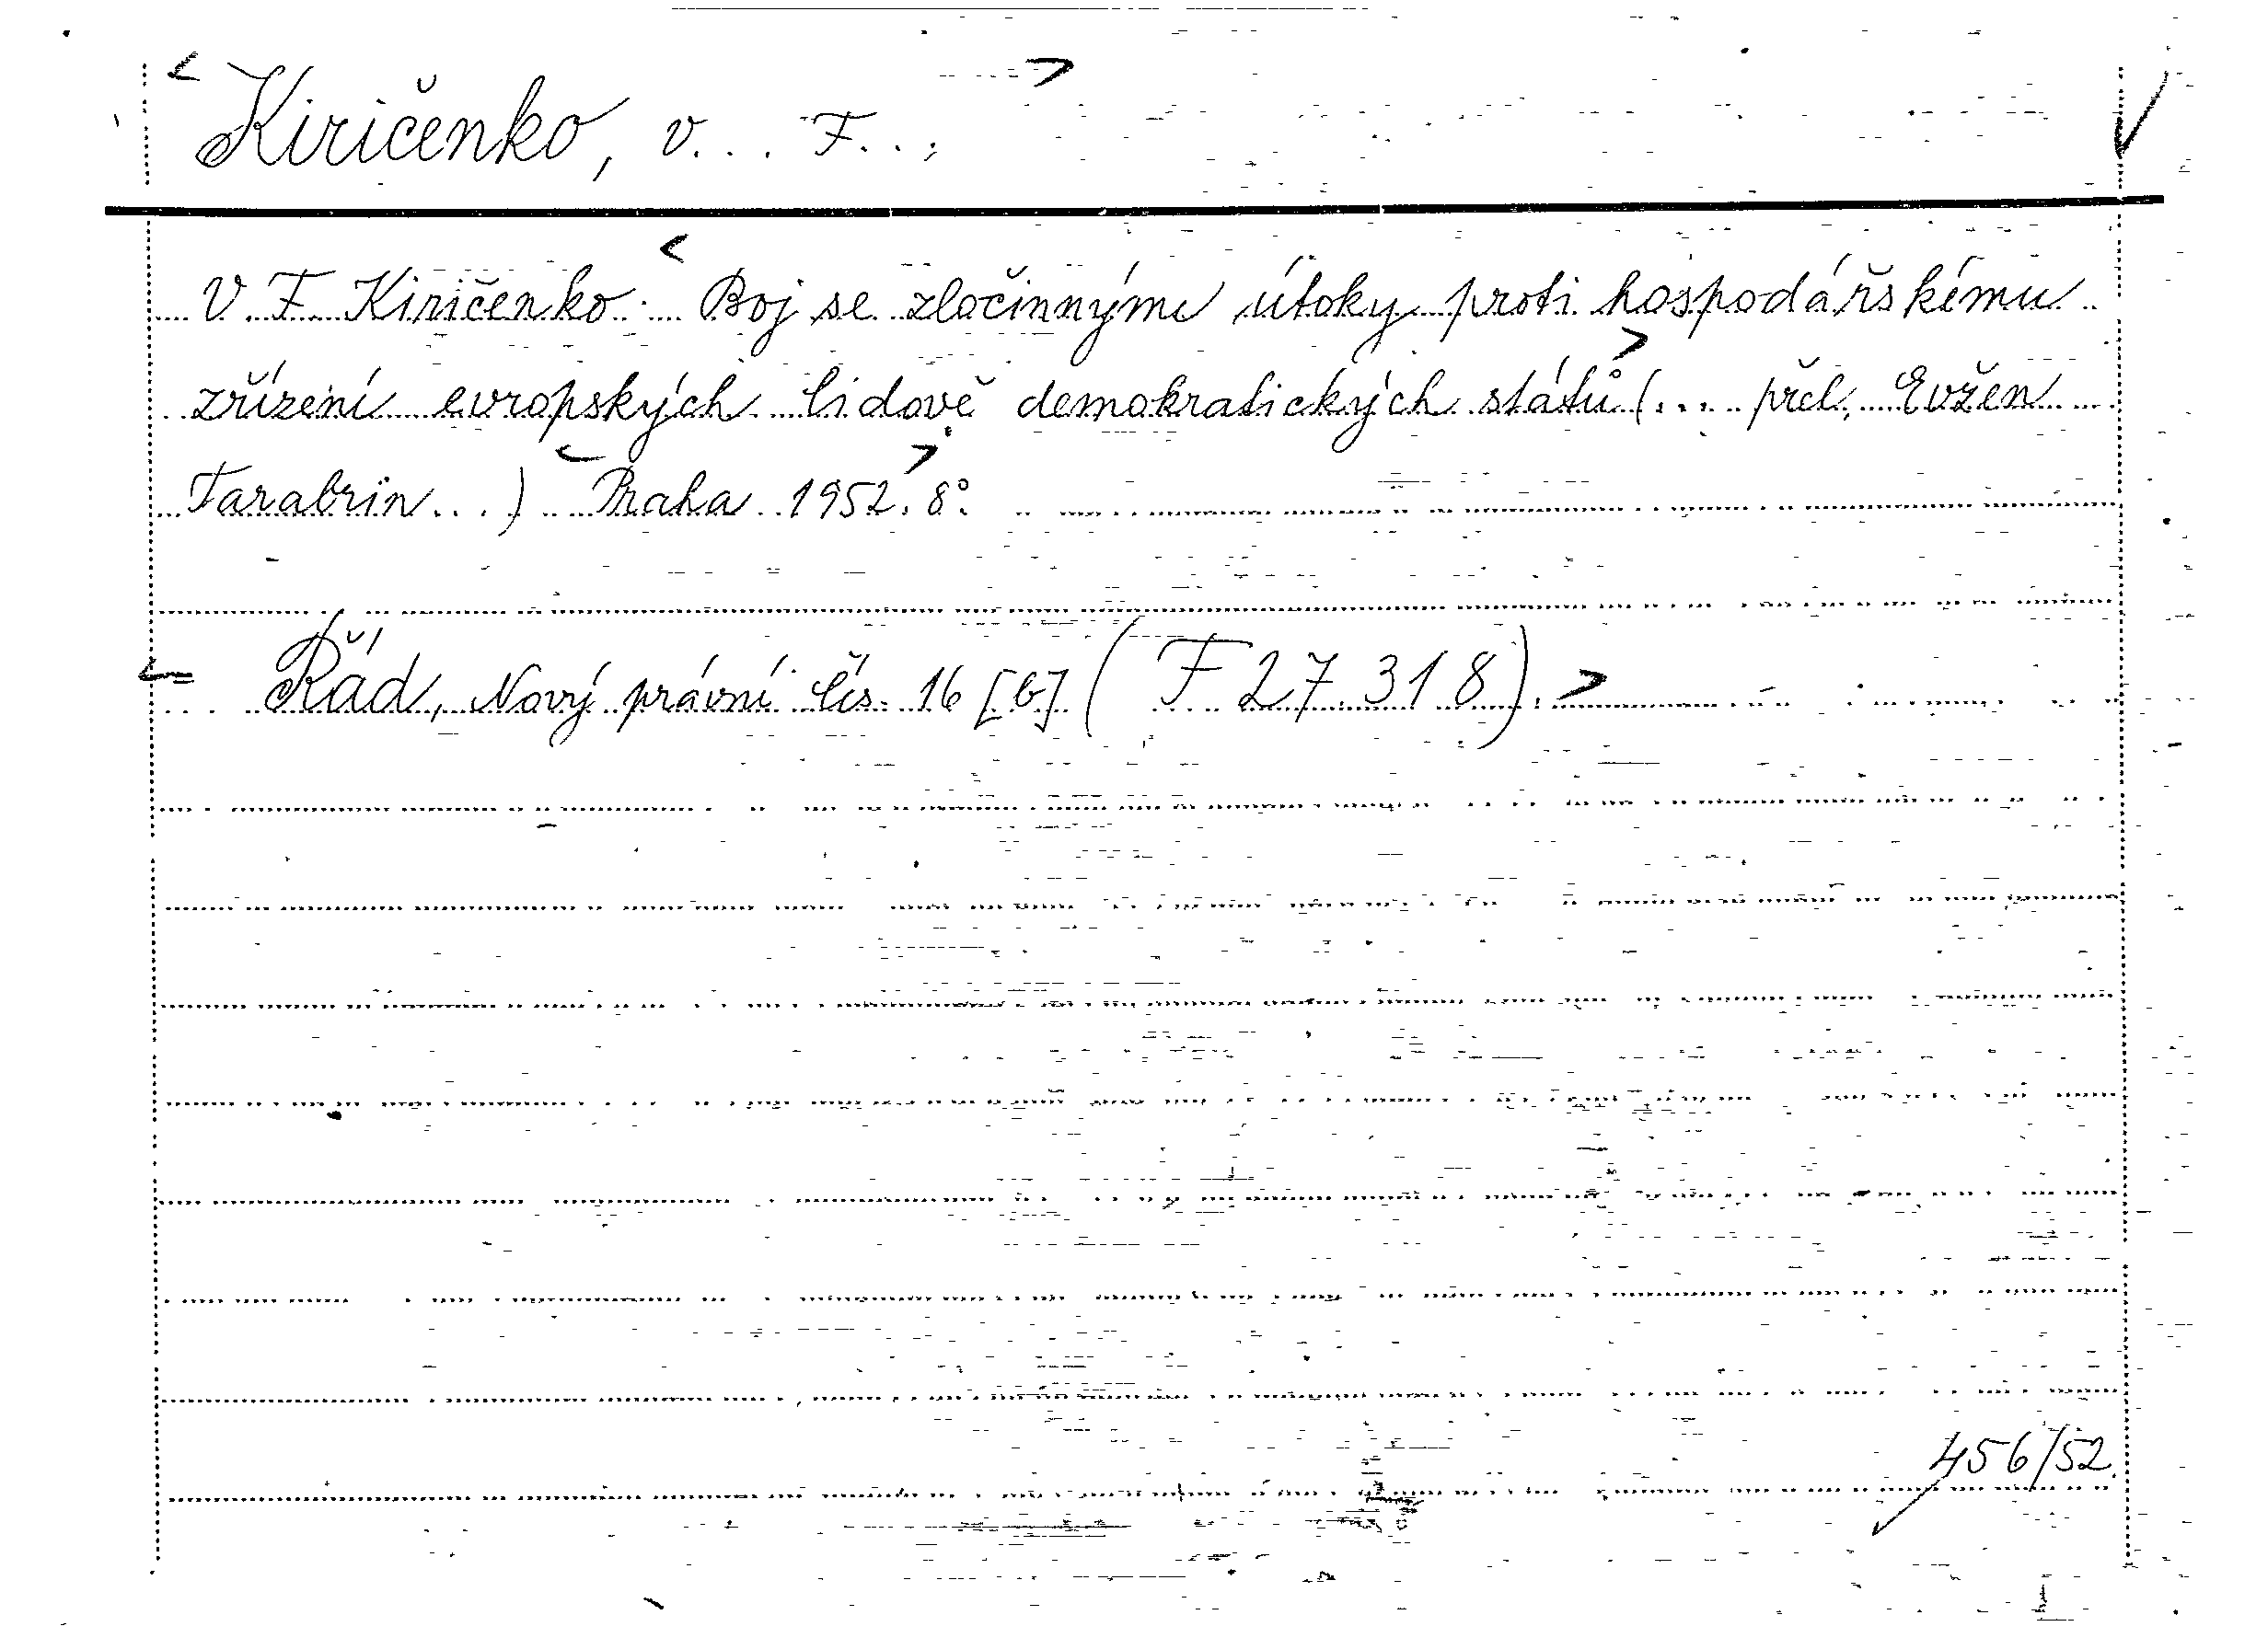 Kiričenko, V... F...
V. F. Kiričenko: Boj se zločinnými útoky proti hospodářskému
zřízení evropských lidově demokratických států (... přel. Evžen
Tarabrin...) Praha 1952. 8°.
= Řád, Nový právní čís. 16 [b] (F 27.318).
456/52.